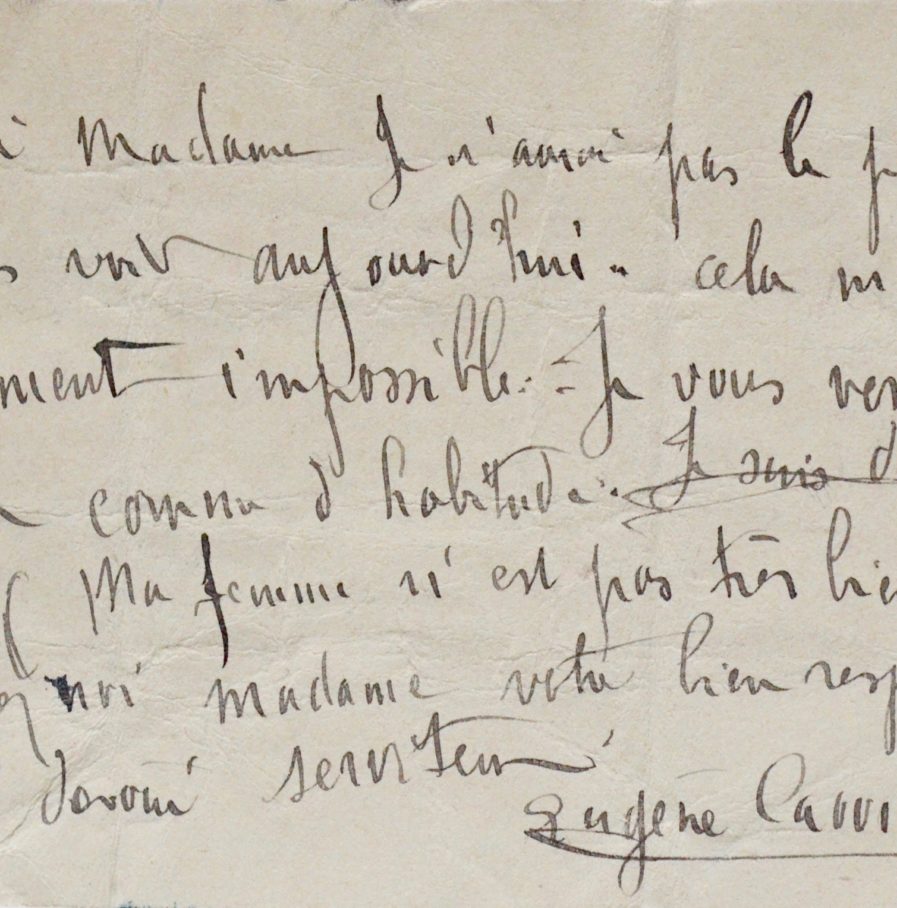 i Madame Je n'aurai pas le p
s voir aujourd'hui. cela m
ment impossible. - Je vous ver
comme d'habitude. Je suis d
Ma femme n'est pas très bie
ez moi madame votre bien resp
dévoué serviteur
Eugène Carri